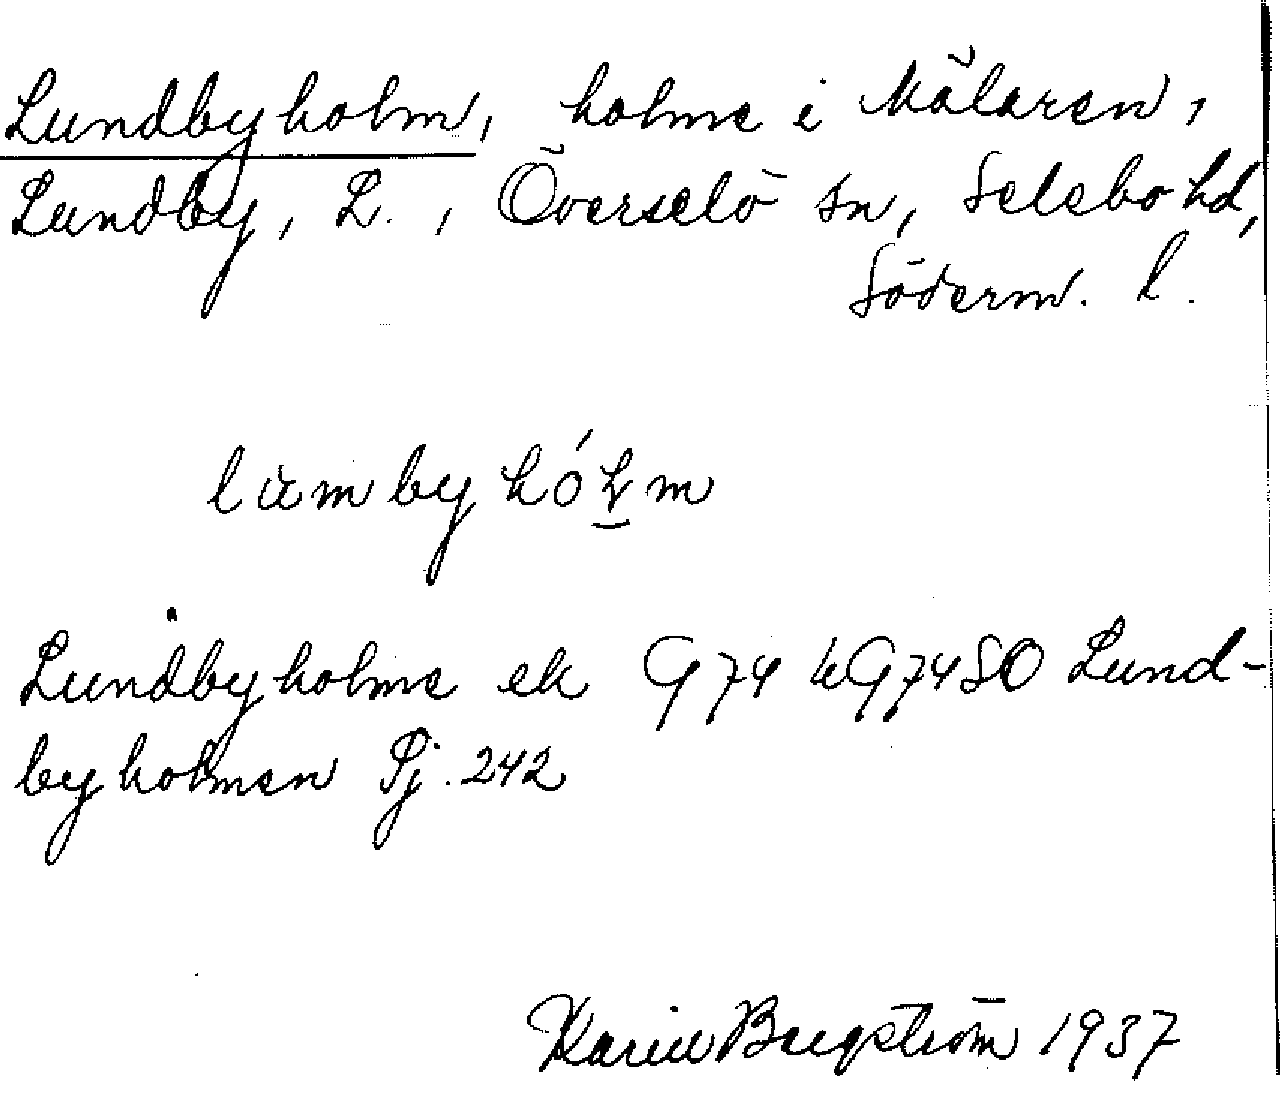 Lundbyholm, holme i Mälaren,
Lundby, L., Överselö sn, Selebo hd,
Söderm. l.
lùmbyhó̵l̬m
Lundbyholme ek G 74 hG7480 Lund-
byholmen Pj. 242
Karin Bergström 1937